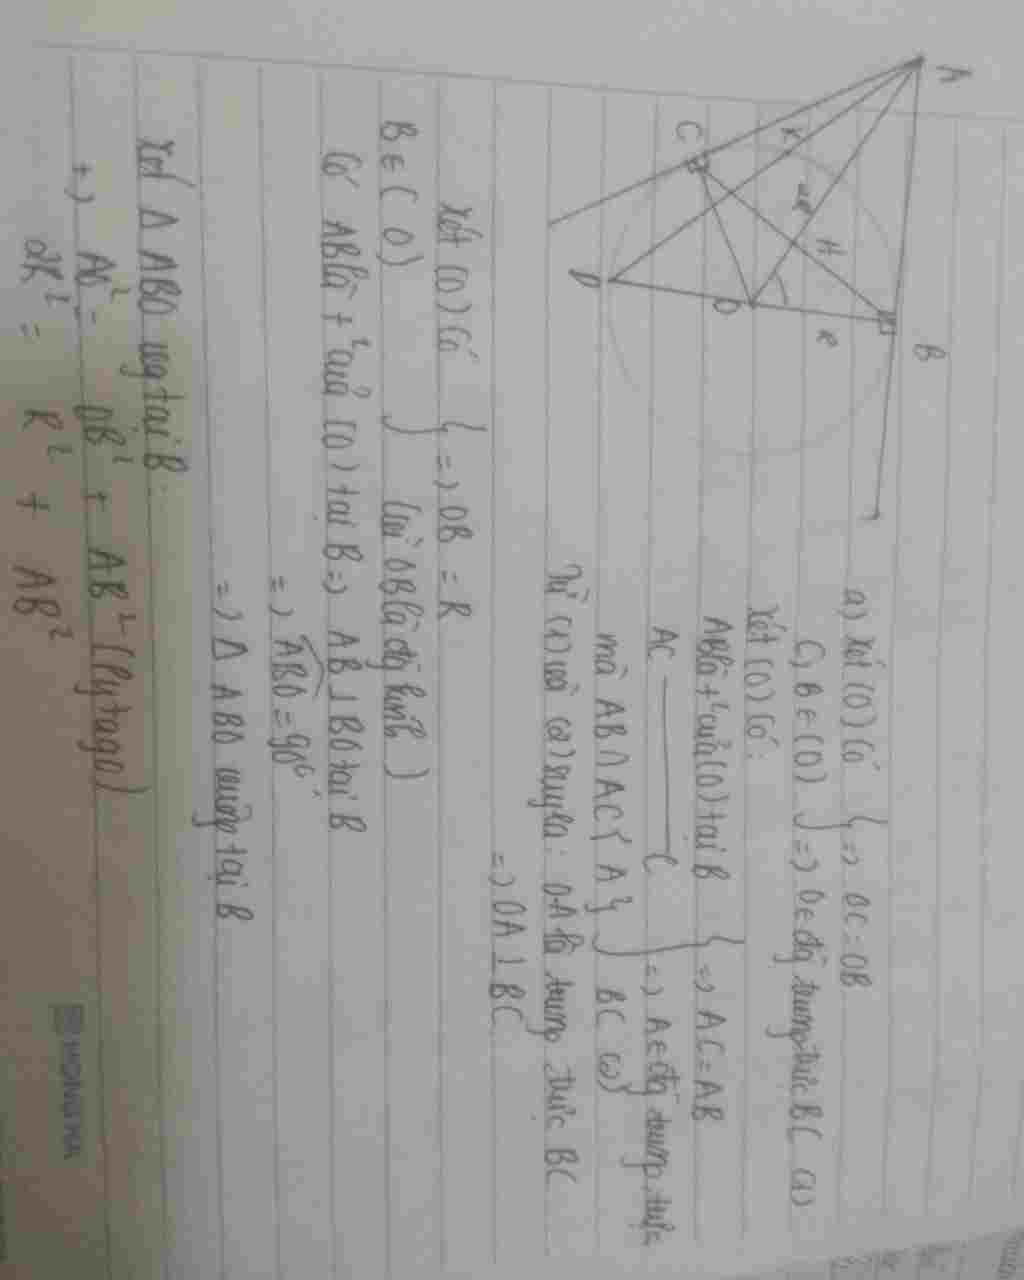 A
B
C
K
H
2R
R
O
D
a) Xét (O) có
C, B ∈ (O) } => OC = OB
=> O ∈ đg trung trực BC (1)
Xét (O) có:
AB là t² của (O) tại B
AC ——— C } => AC = AB
mà AB ∩ AC { A } } => A ∈ đg trung trực
BC (2)
Từ (1) và (2) suy ra: OA là trung trực BC
=> OA ⊥ BC
Xét (O) có
B ∈ ( O) } => OB = R
(với OB là đg kính)
Có AB là t² của (O) tại B => AB ⊥ BO tại B
=> ABO = 90°
=> Δ ABO vuông tại B
Xét Δ ABO vg tại B.
+) AO² = OB² + AB² (Pytago)
2R² = R² + AB²
HONG HA